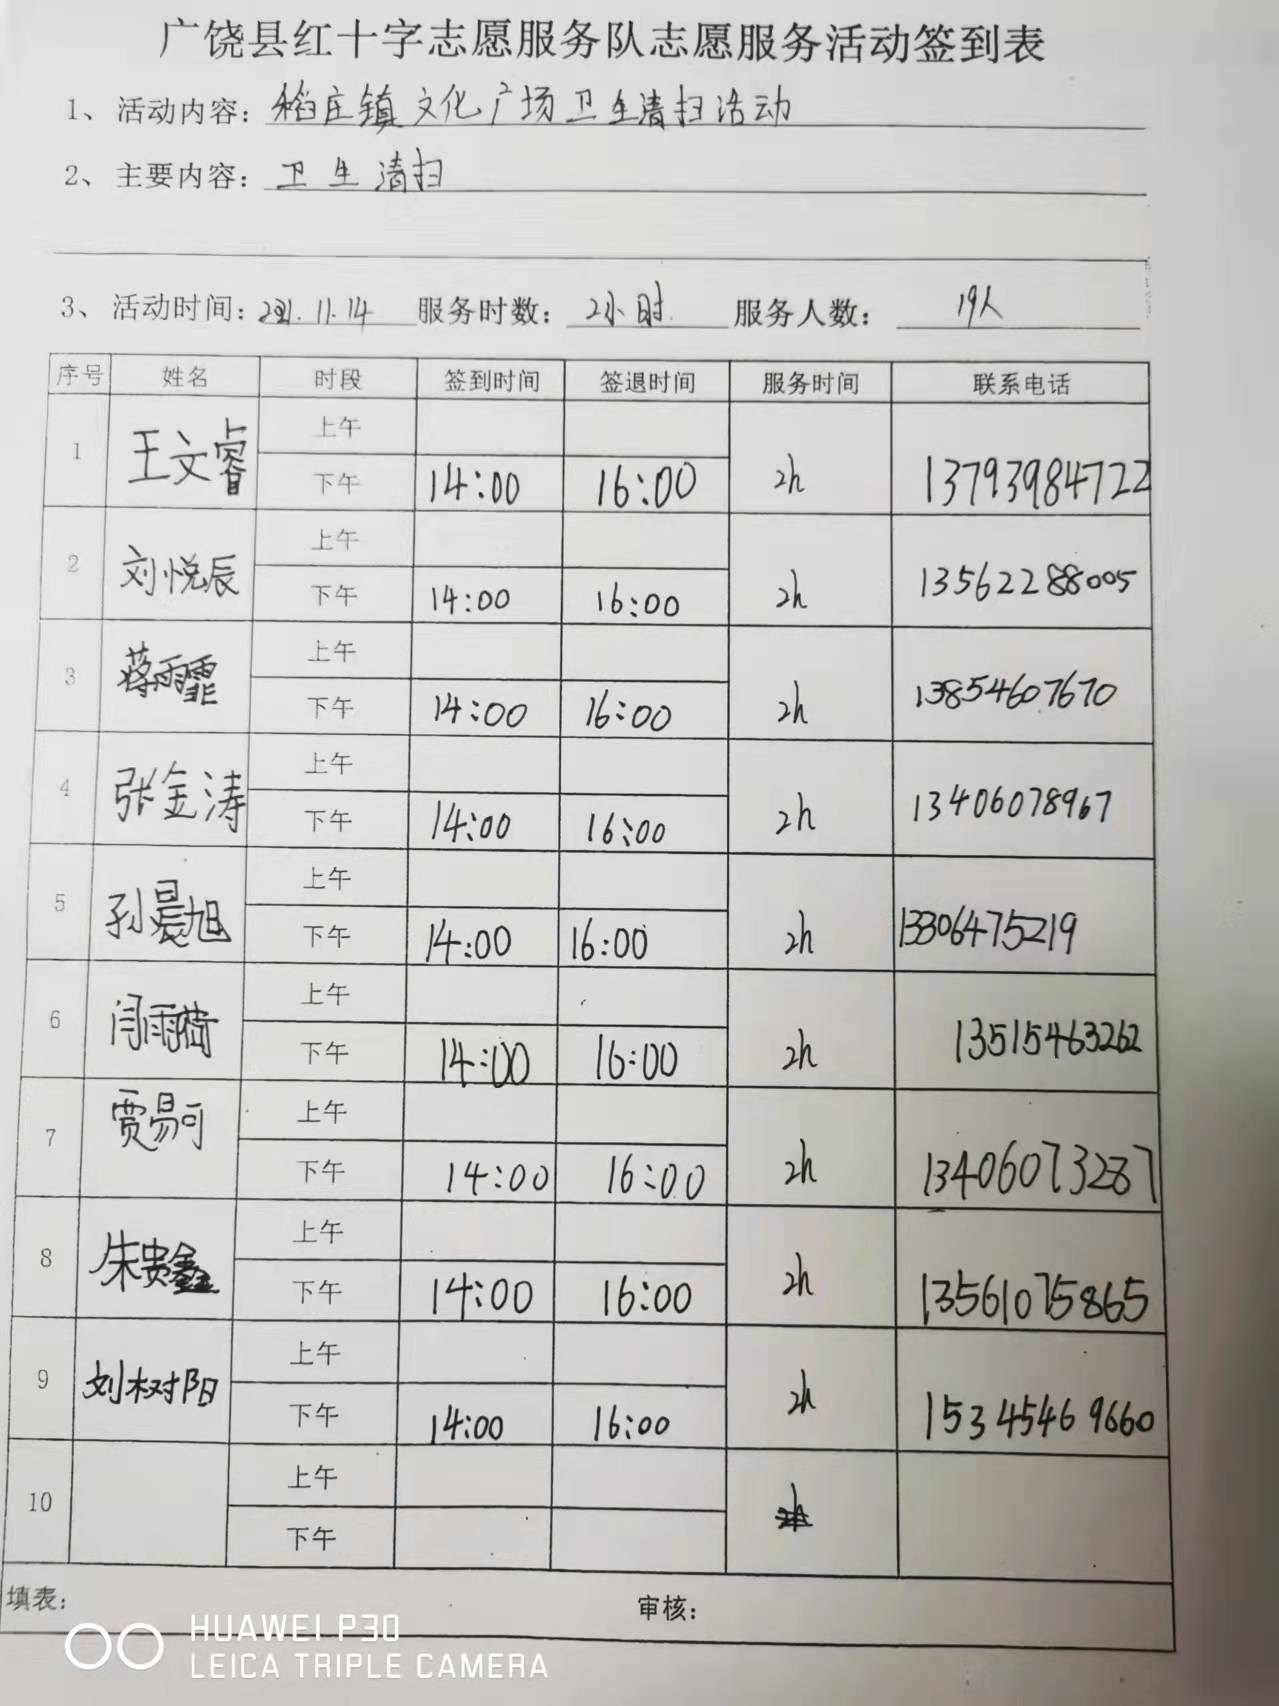 广饶县红十字志愿服务队志愿服务活动签到表
1、活动内容：稻庄镇文化广场卫生清扫活动
2、主要内容：卫生清扫
3、活动时间：2021.11.14 服务时数：2小时 服务人数：19人
序号 姓名 时段 签到时间 签退时间 服务时间 联系电话
1 王文睿 上午
下午 14:00 16:00 2h 13793984722
2 刘悦辰 上午
下午 14:00 16:00 2h 13562288005
3 蒋雨霏 上午
下午 14:00 16:00 2h 13854607670
4 张金涛 上午
下午 14:00 16:00 2h 13406078967
5 孙晨旭 上午
下午 14:00 16:00 2h 13306475219
6 闫雨荷 上午
下午 14:00 16:00 2h 13515463262
7 贾易可 上午
下午 14:00 16:00 2h 13406073287
8 朱贵鑫 上午
下午 14:00 16:00 2h 13561075865
9 刘树阳 上午
下午 14:00 16:00 2h 15345469660
10 上午
下午
填表： 审核：
HUAWEI P30
LEICA TRIPLE CAMERA